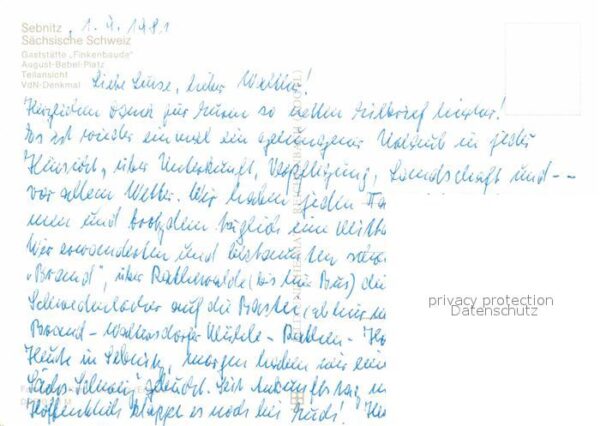 Sebnitz, 1.9.1981
Sächsische Schweiz
Gaststätte „Finkenbaude"
August-Bebel-Platz
Teilansicht
VdN-Denkmal
Liebe Luise, lieber Walther!
Herzlichen Dank für Euren so netten
Es ist wieder einmal ein gelungener Urlaub in jeder
Hinsicht, über Unterkunft, Verpflegung, Landschaft und --
vor allem Wetter. Wir haben jeden
men und trotzdem täglich eine
Wir erwanderten und bestaunten schon
„Brand", über Rathewalde (bis hin Bus) die
Schwedenlöcher auf die Bastei
Brand - Waltersdorfer Mühle - Rathen -
Heute in Sebnitz, morgen haben wir eine
Sächs. Schweiz" gebucht. Seit Ankunftstag
Hoffentlich klappt es noch bei Euch!
privacy protection
Datenschutz